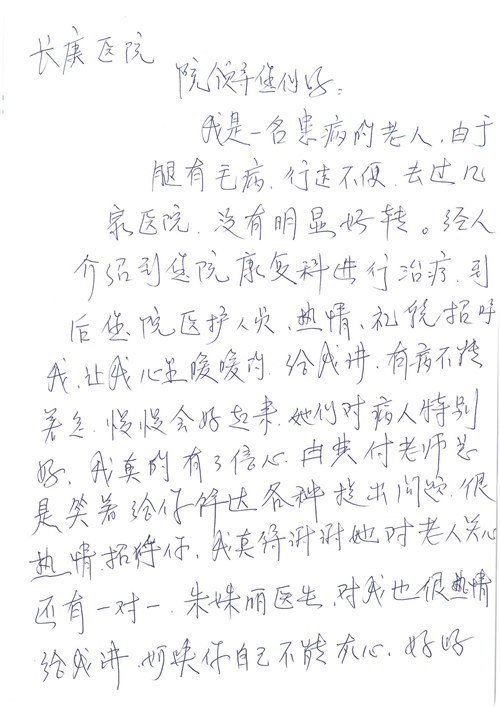 长庚医院
院领导您们好:
我是一名患病的老人,由于
腿有毛病.行走不便.去过几
家医院.没有明显好转。经人
介绍到您院康复科进行治疗.到
后您院医护人员.热情.礼貌招呼
我.让我心里暖暖的.给我讲.有病不能
着急.慢慢会好起来.她们对病人特别
好.我真的有了信心.由其付老师总
是笑着给你解达各种提出问题.很
热情.招待你.我真得谢谢她对老人关心
还有一对一.朱姝丽医生.对我也很热情
给我讲.阿姨你自己不能灰心.好好